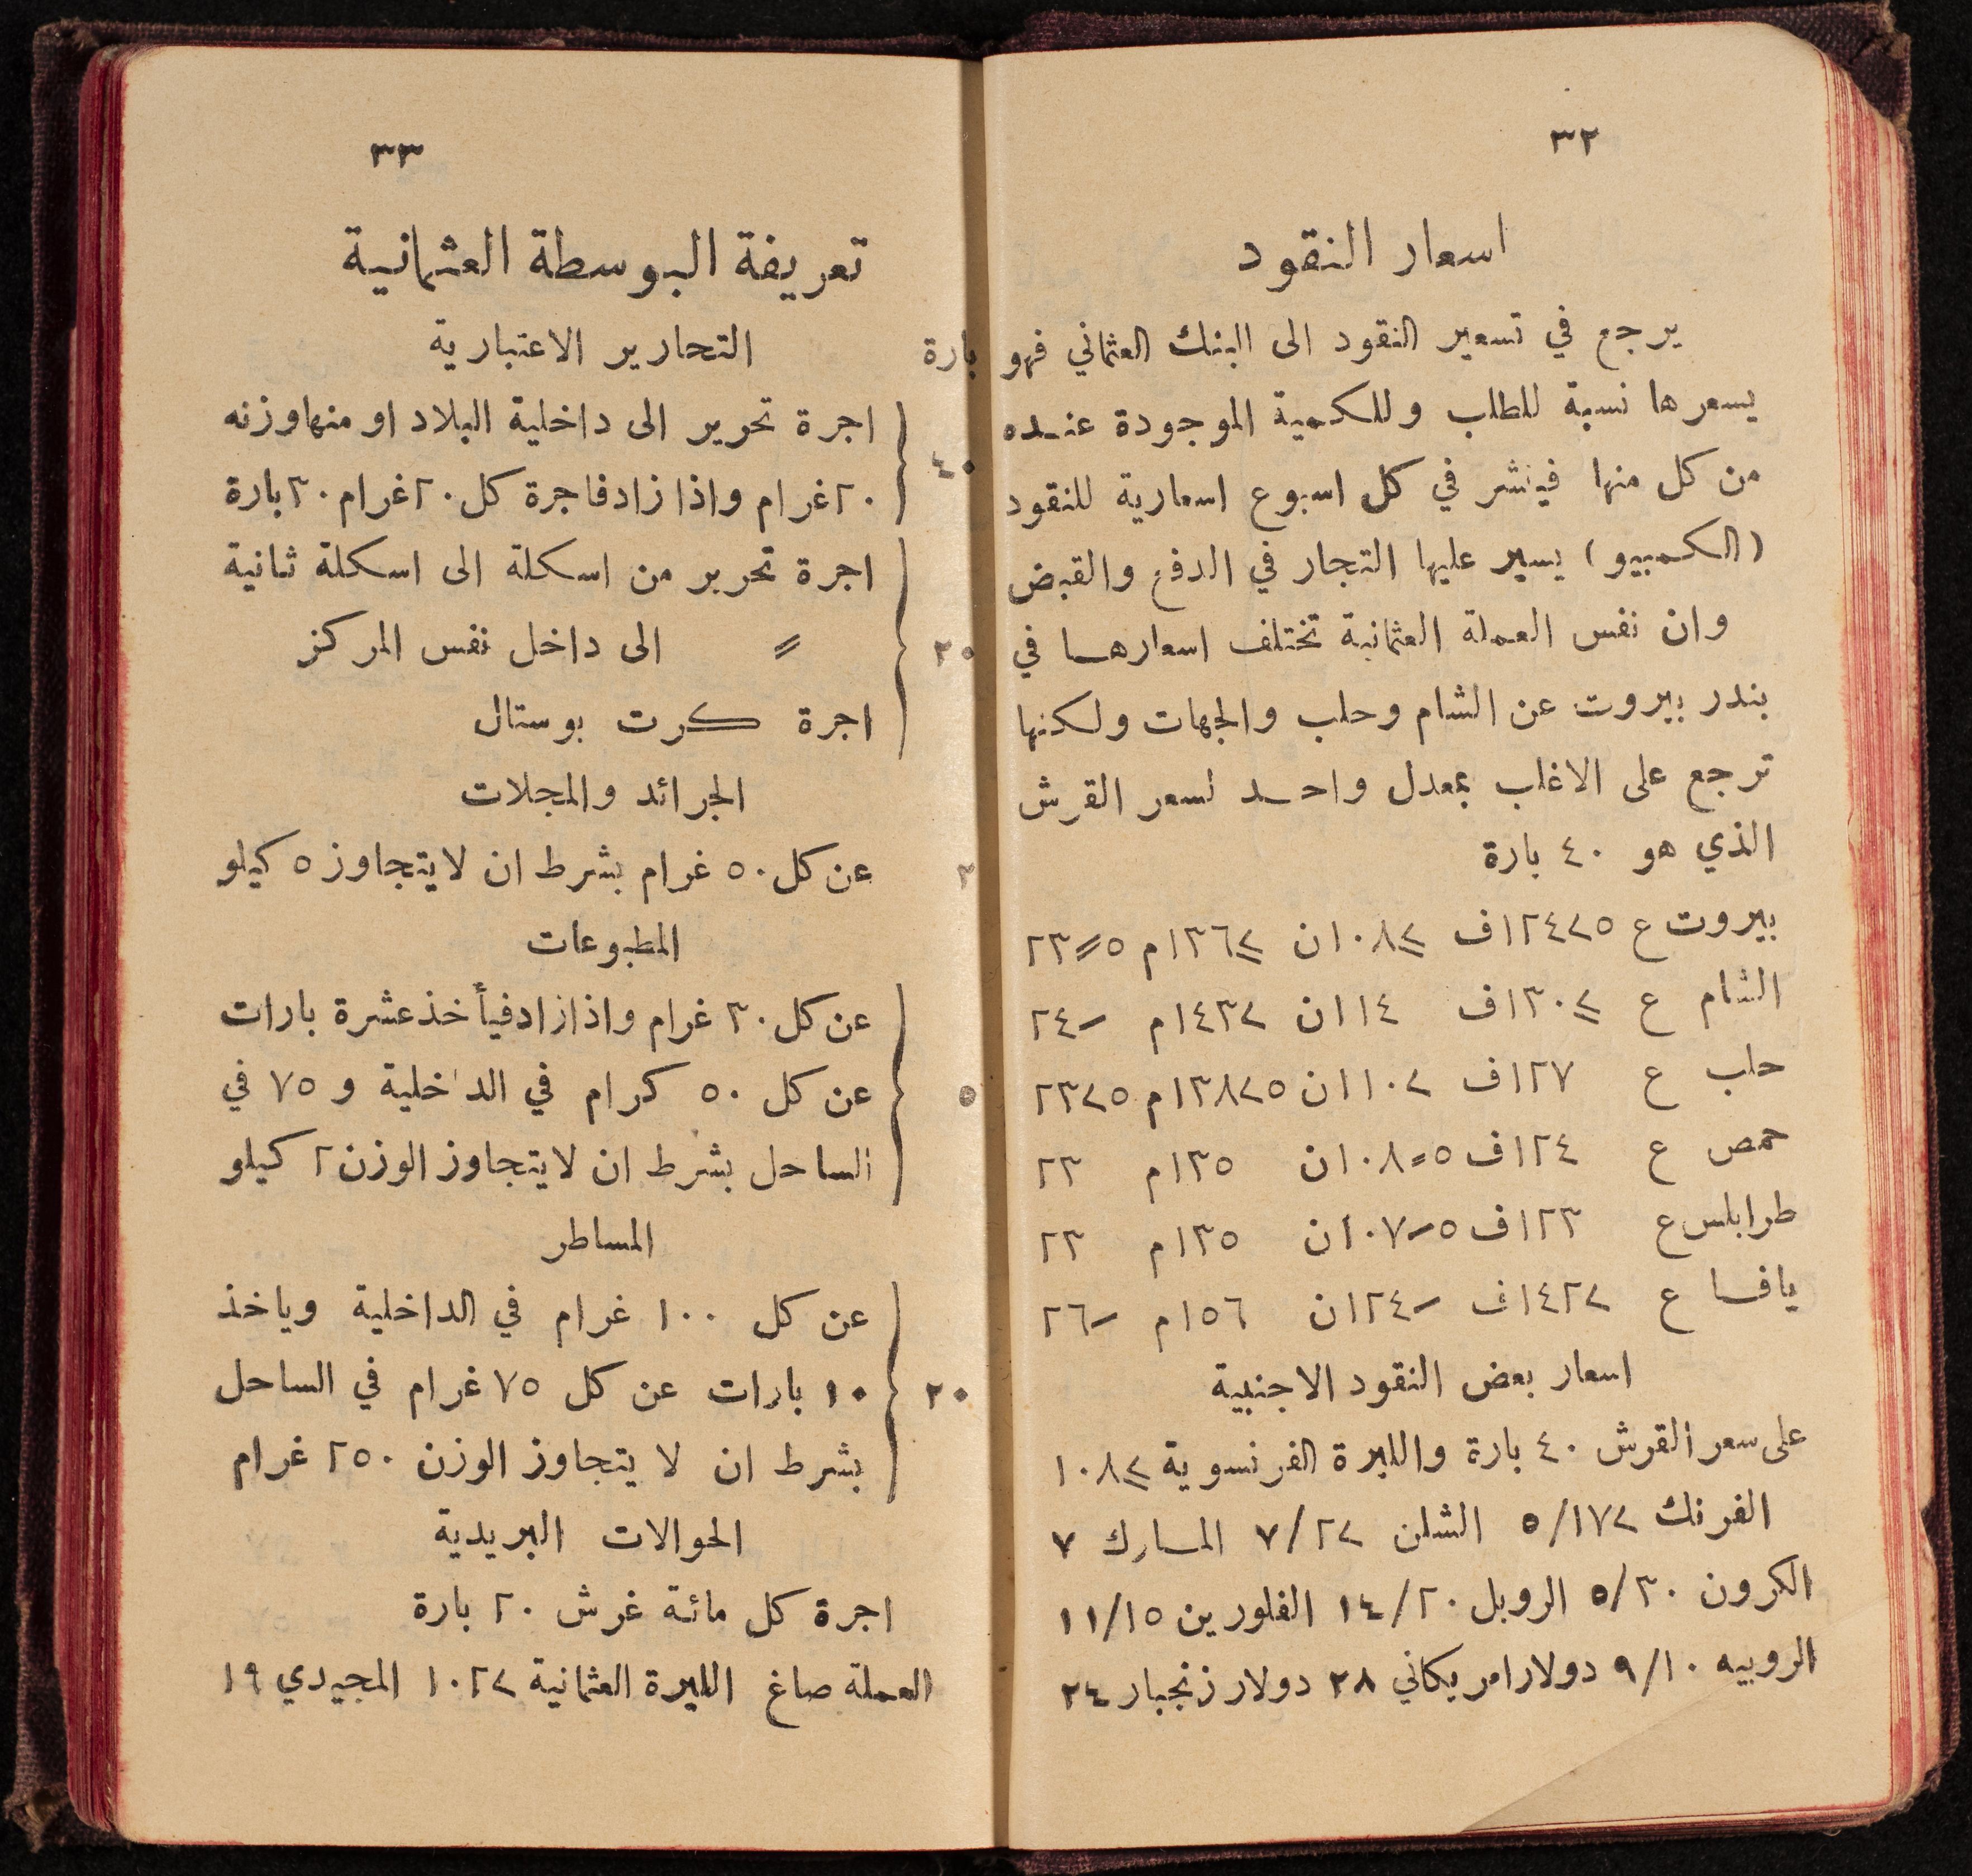 ٣٢
اسعار النقود
يرجع في تسعير النقود الى البنك العثماني فهو
يسعرها نسبة للطلب وللكمية الموجودة عنده
من كل منها فينشر في كل اسبوع اسعارية للنقود
(الكمبيو) يسير عليها التجار في الدفع والقبض
وان نفس العملة العثمانية تختلف اسعارها في
بندر بيروت عن الشام وحلب والجهات ولكنها
ترجع على الاغلب بمعدل واحد لسعر القرش
الذي هو ٤٠ بارة
بيروت ع
الشام ع ١١٤ن
حلب ع ١٢٧ف
حمص ع ١٢٤ف ١٣٥م ٢٣
طرابلس ع ١٢٣ف ١٣٥م ٢٣
يافا ع ١٥٦م
اسعار بعض النقود الاجنبية
على سعر القرش ٤٠ بارة والليرة الفرنسوية
الفرنك الشلن المارك ٧
الكرون ٥/٣٠ الروبل ١٤/٢٠ الفلورين ١١/١٥
الروبيه ٩/١٠ دولار امريكاني ٢٨ دولار زنجبار ٢٤
٣٣
تعريفة البوسطة العثمانية
التحارير الاعتبارية
بارة
اجرة تحرير الى داخلية البلاد او منها وزنه
٤٠
٢٠ غرام واذا زاد فاجرة كل ٢٠ غرام ٣٠ بارة
اجرة تحرير من اسكلة الى اسكلة ثانية
٢٠ 〃 الى داخل نفس المركز
اجرة كرت بوستال
الجرائد والمجلات
٢ عن كل ٥٠ غرام بشرط ان لا يتجاوز ٥ كيلو
المطبوعات
عن كل ٣٠ غرام واذا زاد فيأخذ عشرة بارات
٥ عن كل ٥٠ كرام في الداخلية و ٧٥ في
الساحل بشرط ان لا يتجاوز الوزن ٢ كيلو
المساطر
عن كل ١٠٠ غرام في الداخلية وياخذ
٢٠ ١٠ بارات عن كل ٧٥ غرام في الساحل
بشرط ان لا يتجاوز الوزن ٢٥٠ غرام
الحوالات البريدية
اجرة كل مائة غرش ٢٠ بارة
العملة صاغ الليرة العثمانية المجيدي ١٩